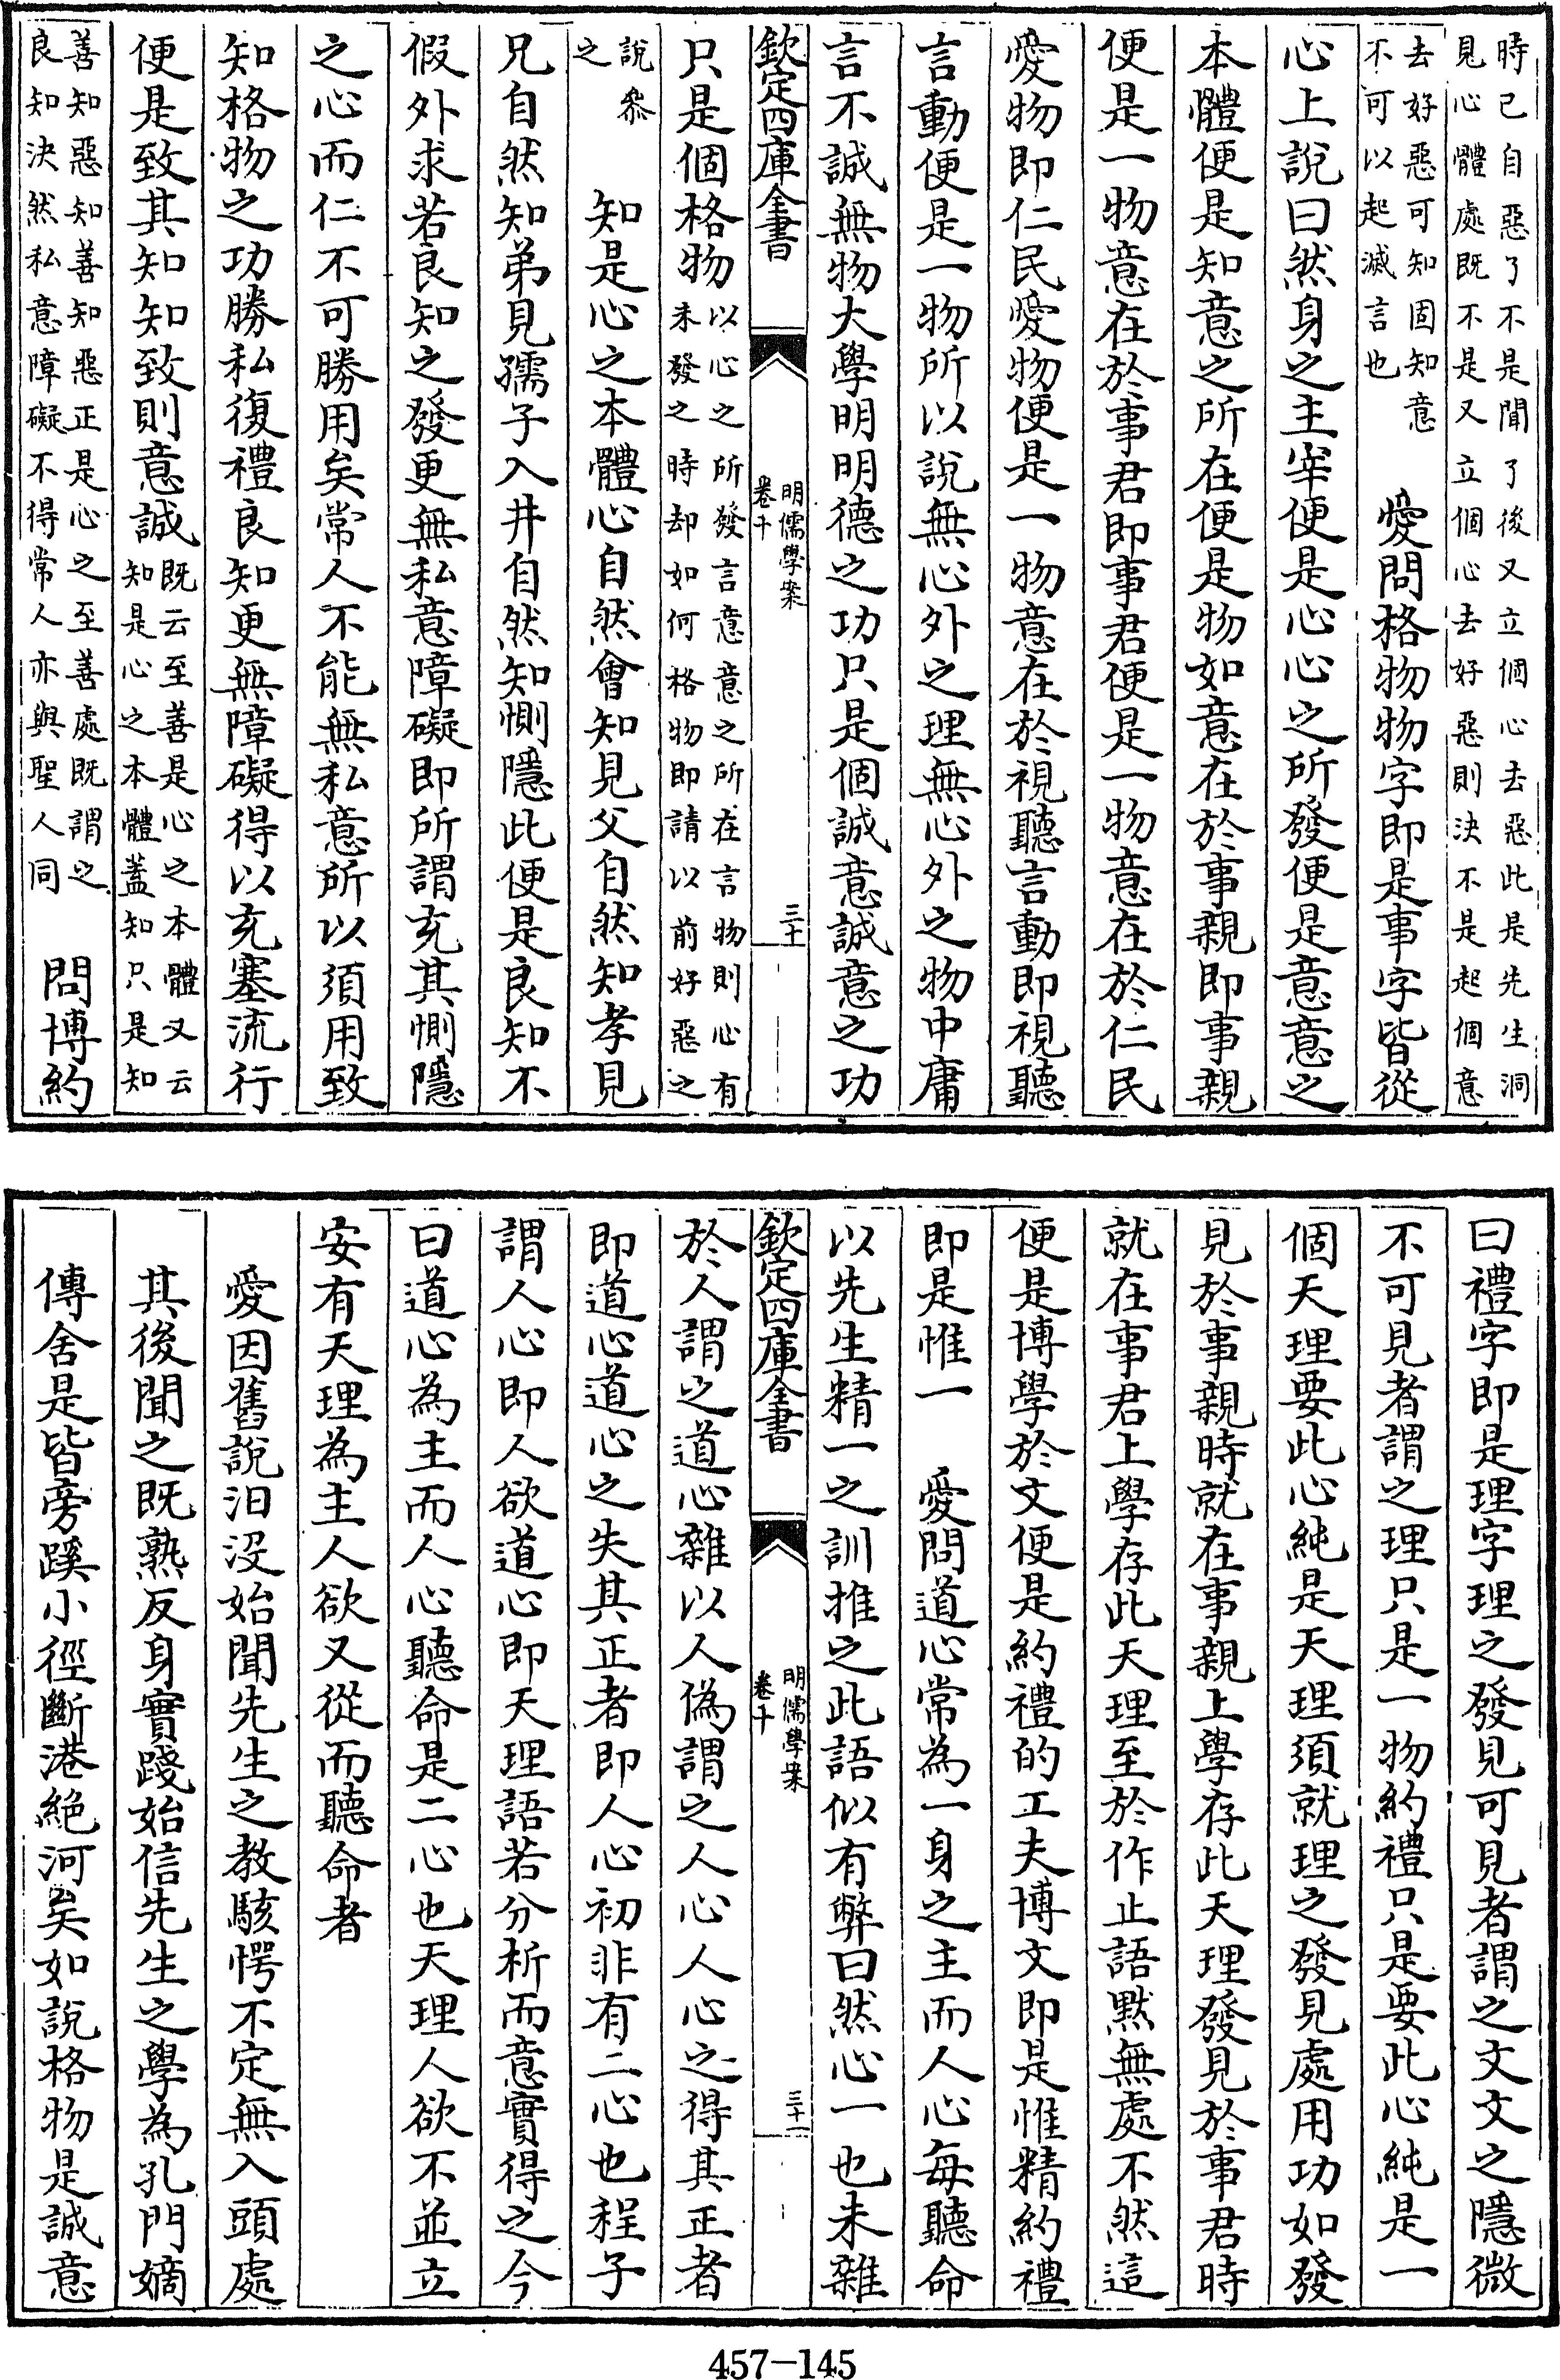 時已自惡了不是聞了後又立個心去惡此是先生洞
見心體處既不是又立個心去好惡則決不是起個意
去好惡可知固知意
不可以起滅言也
愛問格物物字即是事字皆從
心上說曰然身之主宰便是心心之所發便是意意之
本體便是知意之所在便是物如意在於事親即事親
便是一物意在於事君即事君便是一物意在於仁民
愛物即仁民愛物便是一物意在於視聽言動即視聽
言動便是一物所以說無心外之理無心外之物中庸
言不誠無物大學明明德之功只是個誠意誠意之功
欽定四庫全書
明儒學案
卷十
三十
只是個格物
以心之所發言意意之所在言物則心有
未發之時却如何格物即請以前好惡之
說叅
之
知是心之本體心自然會知見父自然知孝見
兄自然知弟見孺子入井自然知惻隱此便是良知不
假外求若良知之發更無私意障礙即所謂充其惻隱
之心而仁不可勝用矣常人不能無私意所以須用致
知格物之功勝私復禮良知更無障礙得以充塞流行
便是致其知知致則意誠
既云至善是心之本體又云
知是心之本體蓋知只是知
善知惡知善知惡正是心之至善處既謂之
良知決然私意障礙不得常人亦與聖人同
問博約
曰禮字即是理字理之發見可見者謂之文文之隱微
不可見者謂之理只是一物約禮只是要此心純是一
個天理要此心純是天理須就理之發見處用功如發
見於事親時就在事親上學存此天理發見於事君時
就在事君上學存此天理至於作止語默無處不然這
便是博學於文便是約禮的工夫博文即是惟精約禮
即是惟一　愛問道心常為一身之主而人心每聽命
以先生精一之訓推之此語似有弊曰然心一也未雜
欽定四庫全書
明儒學案
卷十
三十一
於人謂之道心雜以人偽謂之人心人心之得其正者
即道心道心之失其正者即人心初非有二心也程子
謂人心即人欲道心即天理語若分析而意實得之今
曰道心為主而人心聽命是二心也天理人欲不並立
安有天理為主人欲又從而聽命者
愛因舊說汩沒始聞先生之教駭愕不定無入頭處
其後聞之既熟反身實踐始信先生之學為孔門嫡
傳舍是皆旁蹊小徑斷港絕河矣如說格物是誠意
457-145